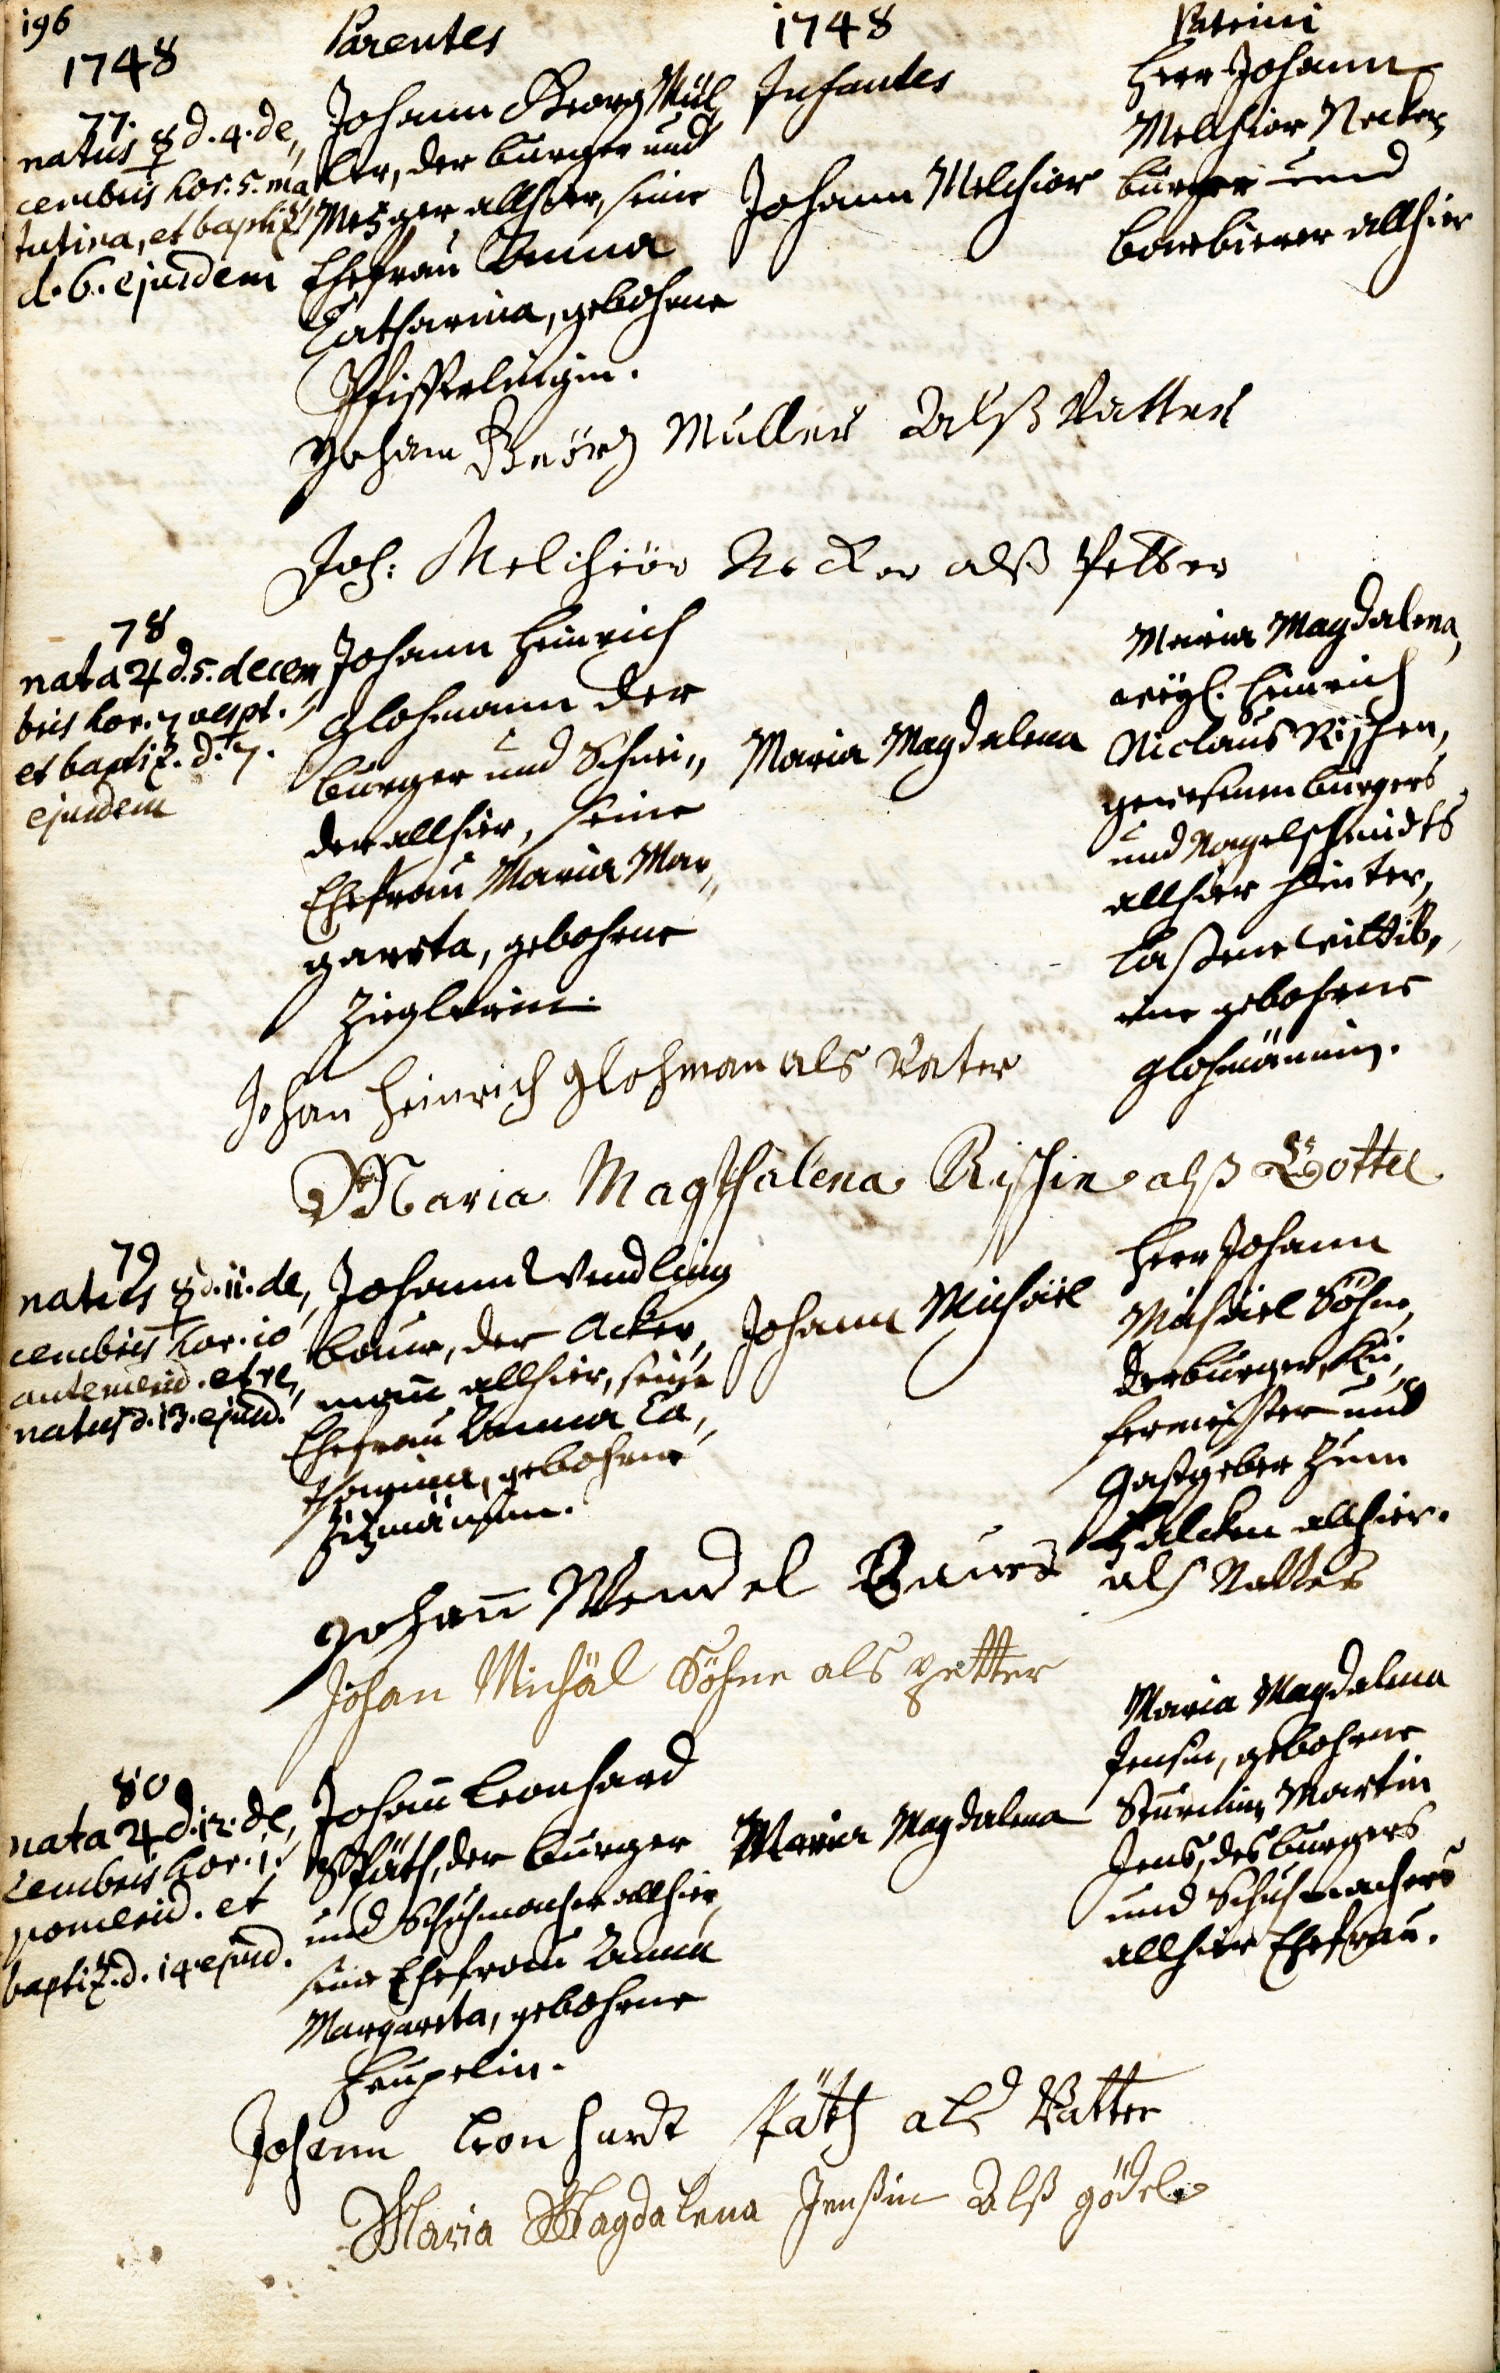 196
1748
Parentes
1748
Infantes
Patrini
77.
natus ☿ d. 4. de„
cembris hor. 5. ma
tutina, et baptiz.
d. 6. ejusdem
Johann Georg Mül„
ler, der burger und
Mezger allhier, seine
Ehefrau Anna
Catharina, gebohrne
Pfisterlingin.
Johann Melchior
Herr Johann
Melchior Necker,
burger und
barbierer allhier
Joham Geörg Muller Alß Vatter
Joh: Melchiör Necker alß Petter
78
nata ♃ d. 5. decem„
bris hor. 7 vespt.
et baptiz. d. 7.
ejusdem
Johann Heinrich
Glohmann der
burger und Schnei„
der allhier, seine
Ehefrau Maria Mar„
gareta, gebohrne
Zieglerin.
Maria Magdalena
Maria Magdalena,
weyl. Heinrich
Niclaus Rischen,
gewesenen burgers
und Nagelschmidts
allhier hinter„
laßene Wittib,
eine gebohrne
Glohmännin.
Johan Heinrich Glohman als Vater
Maria Magthalena Rischin alß Gottel
79
natus ☿ d. 11. de„
cembris hor. 10
antemerid. et re„
natus d. 13. ejusd.
Johann Wendling
baur, der Acker„
mañ allhier, seine
Ehefrau Anna Ca„
tharina, gebohrne
Johann Michäel
Herr Johann
Michäel Söhne,
der burger, Kü„
fermeister und
Gastgeber zum
Falcken allhier.
Johañ Wendel Baur
als Vatter
Johan Michäl Söhne als petter
80
nata ♃ d. 12. de„
cembris hor. 1.
pomerid. et
baptiz. d. 14 ejusd.
Johañ Leonhard
Späth, der burger
und Schuhmacher allhier,
seine Ehefrau Anna
Margareta, gebohrne
Heupelin.
Maria Magdalena
Maria Magdalena
Jensin, gebohrne
Sturmin, Martin
Jens, des burgers
und Schuhmachers
allhier Ehefrau.
Johann Leonhardt späth als Vatter
Maria Magdalena Jenßin Alß gödel